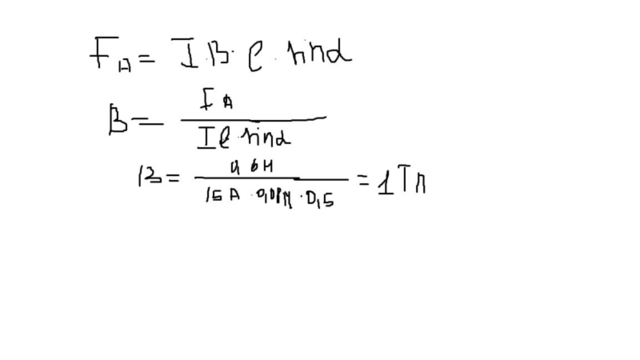 F_A = I B · l · sin α
B = F_A / I l sin α
B = 0,6 Н / 15 А · 0,08 м · 0,5 = 1 Тл